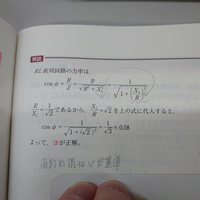 解説
RL直列回路の力率は,
cos φ = R/Z = R/√(R² + X_L²) = 1/√(1 + (X_L/R)²)
R/X_L = 1/√2 であるから, X_L/R = √2 を上の式に代入すると,
cos φ = 1/√(1 + (√2)²) = 1/√3 ≒ 0.58
よって, (3)が正解。